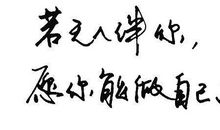 若无人伴你，
愿你能做自己、